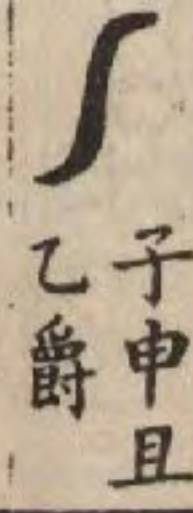 子申且
乙爵